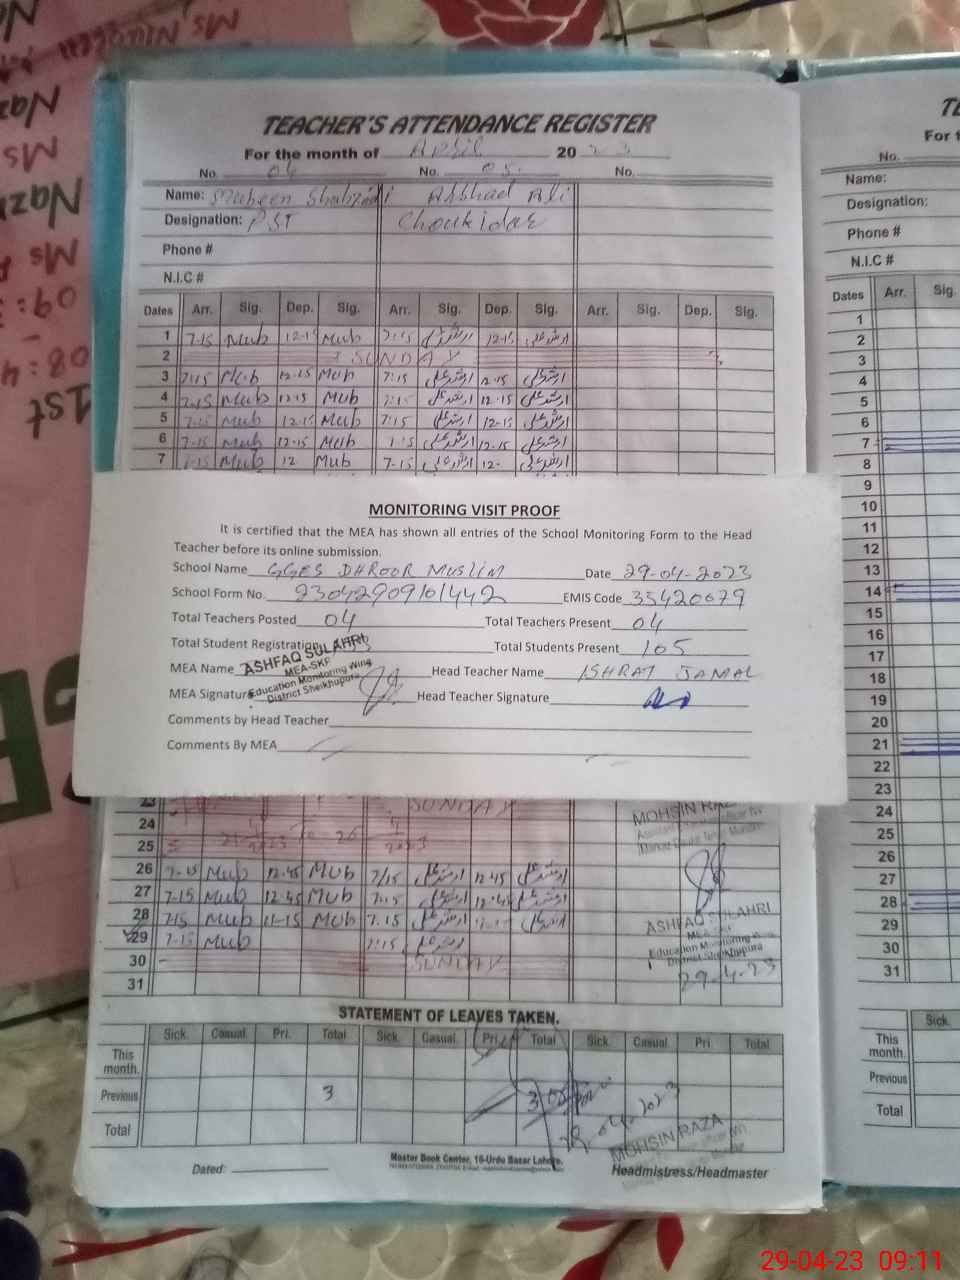 TEACHER'S ATTENDANCE REGISTER
For the month of April 2023
No. 04 No. 05. No.
Name: Mubeen Shahzadi Arshad Ali
Designation: PST Choukidar
Phone #
N.I.C #
Dates Arr. Sig. Dep. Sig. Arr. Sig. Dep. Sig. Arr. Sig. Dep. Sig.
1 7-15 Mub 12-15 Mub 7:15 ارشد علی 12-15 ارشد علی
2 SUNDAY
3 7:15 Mub 12-15 Mub 7:15 ارشد علی 12-15 ارشد علی
4 7-15 Mub 12-15 Mub 7:15 ارشد علی 12-15 ارشد علی
5 7-15 Mub 12-15 Mub 7:15 ارشد علی 12-15 ارشد علی
6 7-15 Mub 12-15 Mub ارشد علی 12-15 ارشد علی
7 Mub 12 Mub 7-15 ارشد علی 12- ارشد علی
MONITORING VISIT PROOF
It is certified that the MEA has shown all entries of the School Monitoring Form to the Head
Teacher before its online submission.
School Name GGES DHROOR MUSLIM Date 29-04-2023
School Form No. 23042909101442 EMIS Code 35420079
Total Teachers Posted 04 Total Teachers Present 04
Total Student Registration Total Students Present 105
MEA Name ASHFAQ SULAHRI Head Teacher Name ISHRAT JAMAL
MEA-SKP
Education Monitoring Wing
District Sheikhupura
MEA Signature Head Teacher Signature
Comments by Head Teacher
Comments By MEA
23 SUNDAY
24
25
MOHSIN RAZA
26 7-15 Mub 12-45 Mub 7/15 ارشد علی 12 45 ارشد علی
27 7-15 Mub 12-45 Mub 7:15 ارشد علی 12-45 ارشد علی
28 7-15 Mub 11-15 Mub 7.15 ارشد علی ارشد علی
29 7-15 Mub 7:15 ارشد علی
30 SUNDAY
31
ASHFAQ SULAHRI
MEA-SKP
Education Monitoring Wing
District Sheikhupura
29-4-23
STATEMENT OF LEAVES TAKEN.
Sick. Casual. Pri. Total Sick. Casual. Pri. Total Sick. Casual. Pri. Total
This month.
Previous 3 3
Total
29.04.2023
MOHSIN RAZA
Dated:
Master Book Center, 16-Urdu Bazar Lahore.
Headmistress/Headmaster
For t
No.
Name:
Designation:
Phone #
N.I.C #
Dates Arr. Sig.
1
2
3
4
5
6
7
8
9
10
11
12
13
14
15
16
17
18
19
20
21
22
23
24
25
26
27
28
29
30
31
Sick.
This month.
Previous
Total
Naz
Ms
Nazo
Ms
08:4
1st
29-04-23 09:11